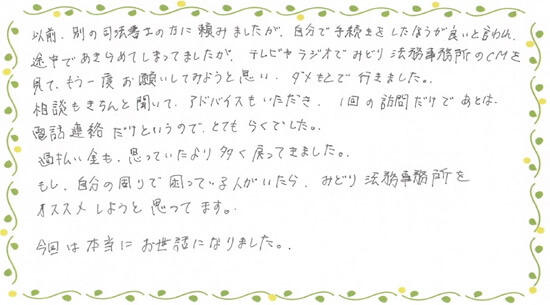 以前、別の司法書士の方に頼みましたが、自分で手続きをしたほうが良いと言われ、
途中であきらめてしまってましたが、テレビやラジオでみどり法務事務所のCMを
見て、もう一度お願いしてみようと思い、ダメもとで行きました。
相談もきちんと聞いて、アドバイスもいただき、1回の訪問だけであとは、
電話連絡だけというので、とてもらくでした。
過払い金も、思っていたより多く戻ってきました。
もし、自分の周りで困っている人がいたら、みどり法務事務所を
オススメしようと思ってます。
今回は本当にお世話になりました。